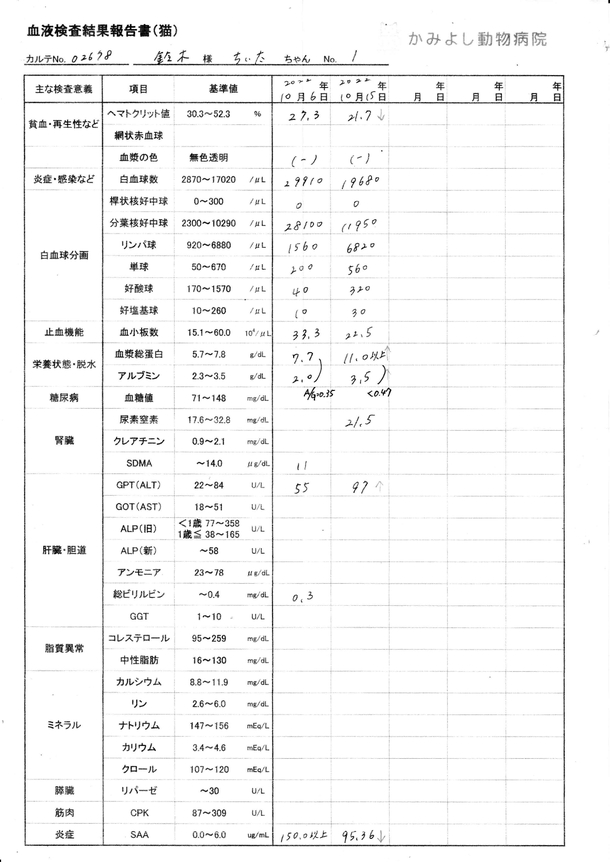 血液検査結果報告書(猫)
かみよし動物病院
カルテNo. 02678 鈴木 様 ちぃた ちゃん No. 1
主な検査意義 項目 基準値 2022年10月6日 2022年10月15日 年月日 年月日 年月日
貧血・再生性など ヘマトクリット値 30.3～52.3 % 27.3 21.7↓
網状赤血球
血漿の色 無色透明 (-) (-)
炎症・感染など 白血球数 2870～17020 /μL 29910 19680
白血球分画 桿状核好中球 0～300 /μL 0 0
分葉核好中球 2300～10290 /μL 28100 11950
リンパ球 920～6880 /μL 1560 6820
単球 50～670 /μL 200 560
好酸球 170～1570 /μL 40 320
好塩基球 10～260 /μL 10 30
止血機能 血小板数 15.1～60.0 10⁴/μL 33.3 22.5
栄養状態・脱水 血漿総蛋白 5.7～7.8 g/dL 7.7 11.0以上↑
アルブミン 2.3～3.5 g/dL 2.0 3.5
糖尿病 血糖値 71～148 mg/dL A/G=0.35 <0.47
腎臓 尿素窒素 17.6～32.8 mg/dL 21.5
クレアチニン 0.9～2.1 mg/dL
SDMA ～14.0 μg/dL 11
肝臓・胆道 GPT(ALT) 22～84 U/L 55 97↑
GOT(AST) 18～51 U/L
ALP(旧) <1歳 77～358 1歳≦ 38～165 U/L
ALP(新) ～58 U/L
アンモニア 23～78 μg/dL
総ビリルビン ～0.4 mg/dL 0.3
GGT 1～10 U/L
脂質異常 コレステロール 95～259 mg/dL
中性脂肪 16～130 mg/dL
ミネラル カルシウム 8.8～11.9 mg/dL
リン 2.6～6.0 mg/dL
ナトリウム 147～156 mEq/L
カリウム 3.4～4.6 mEq/L
クロール 107～120 mEq/L
膵臓 リパーゼ ～30 U/L
筋肉 CPK 87～309 U/L
炎症 SAA 0.0～6.0 ug/mL 150.0以上 95.36↓